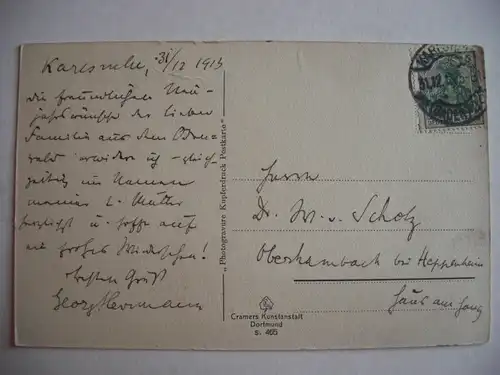 Karlsruhe, 31/12 1913
Die freundlichen Neu-
jahrswünsche der lieben
Familie aus dem Oden-
wald erwidere ich gleich-
zeitig im Namen
meiner l. Mutter
herzlichst u. hoffe auf
ein frohes Wiedersehen!
Besten Gruß
Georg Herrmann
"Photogravure Kupferdruck Postkarte"
Cramers Kunstanstalt
Dortmund
S. 465
31.12
Herrn
Dr. W. v. Scholz
Oberhambach bei Heppenheim
Haus am Hang